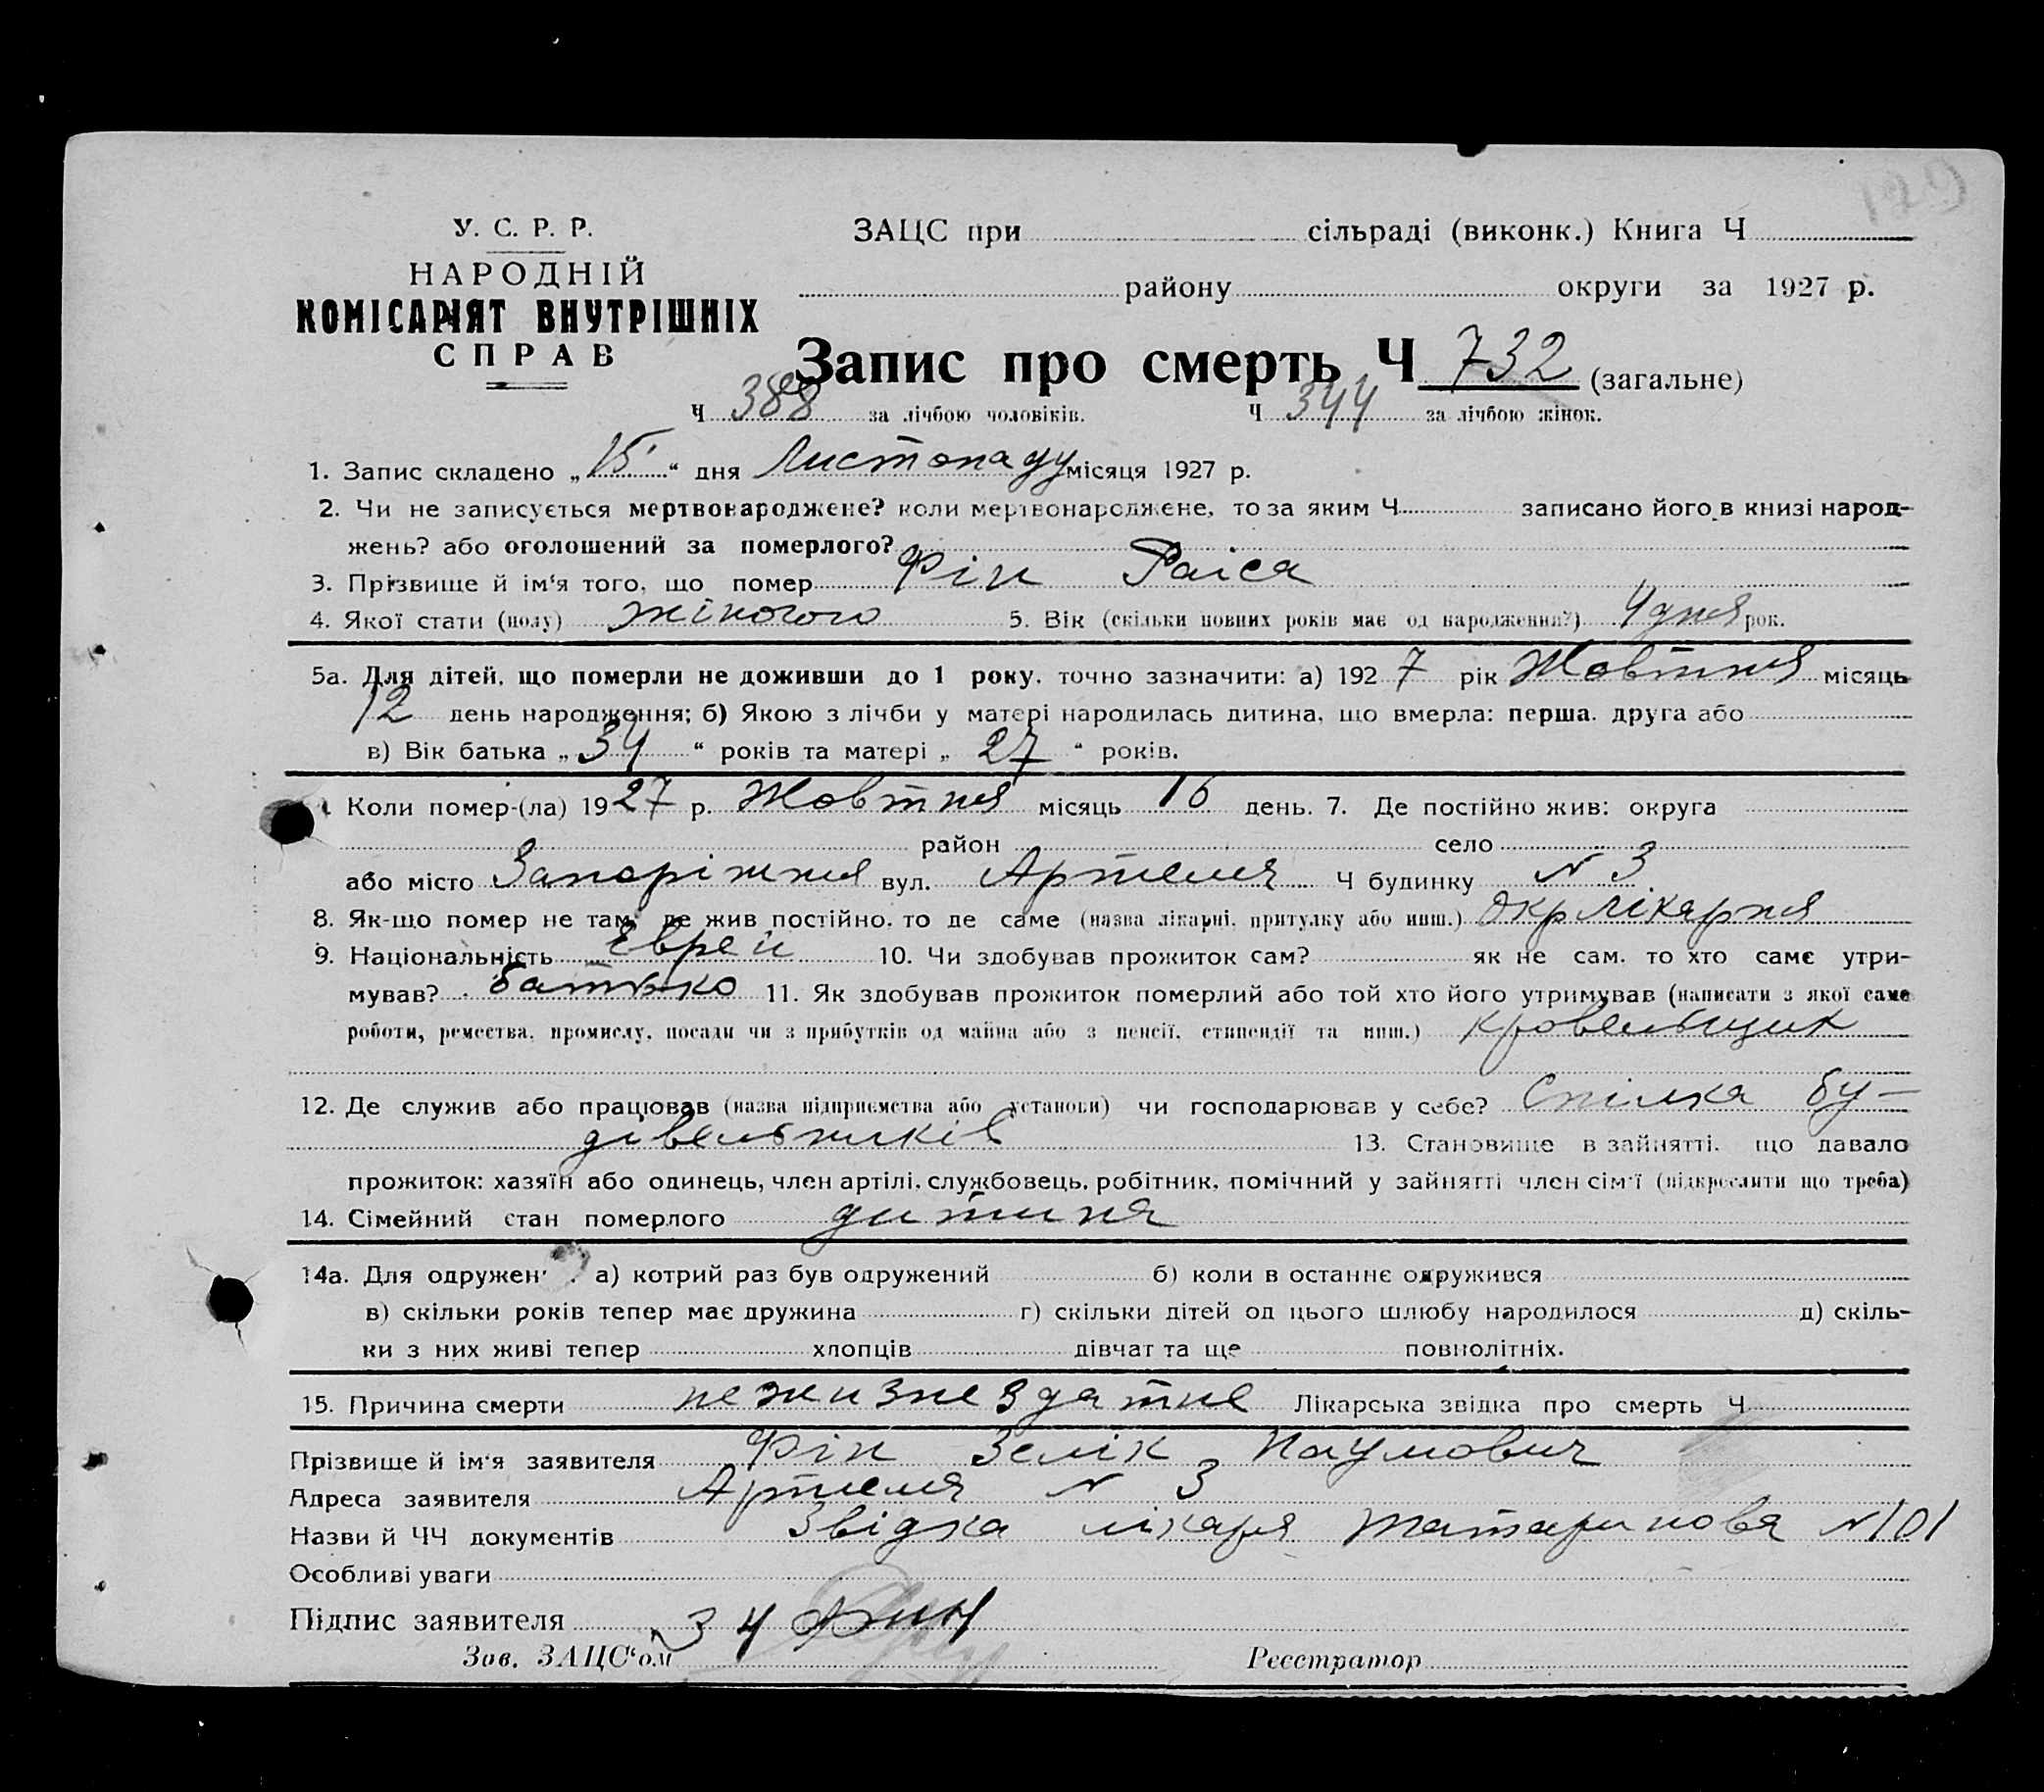 У. С. Р. Р.
НАРОДНІЙ
КОМІСАРІЯТ ВНУТРІШНІХ
СПРАВ
ЗАЦС при сільраді (виконк.) Книга Ч
району округи за 1927 р.
Запис про смерть Ч 732 (загальне)
Ч 388 за лічбою чоловіків. Ч 344 за лічбою жінок.
1. Запис складено „15“ дня Листопаду місяця 1927 р.
2. Чи не записується мертвонароджене? коли мертвонароджене, то за яким Ч записано його в книзі народ-
жень? або оголошений за померлого?
3. Прізвище й ім‘я того, що помер Фін Раіса
4. Якої стати (полу) жіногого 5. Вік (скільки повних років має од народження?) 4 дня рок.
5а. Для дітей, що померли не доживши до 1 року, точно зазначити: а) 1927 рік Жовтня місяць
12 день народження; б) Якою з лічби у матері народилась дитина, що вмерла: перша, друга або
в) Вік батька „34“ років та матері „27“ років.
Коли помер-(ла) 1927 р. Жовтня місяць 16 день. 7. Де постійно жив: округа
район село
або місто Запоріжжя вул. Артема Ч будинку N 3
8. Як-що помер не там, де жив постійно, то де саме (назва лікарні, притулку або инш.) Окрлікарня
9. Національність Еврей 10. Чи здобував прожиток сам? як не сам, то хто саме утри-
мував? батько 11. Як здобував прожиток померлий або той хто його утримував (написати з якої саме
роботи, ремества, промислу, посади чи з прибутків од майна або з пенсії, стипендії та инш.) кровельщик
12. Де служив або працював (назва підприємства або установи) чи господарював у себе? Спілка бу-
дівельників 13. Становище в зайнятті, що давало
прожиток: хазяїн або одинець, член артілі, службовець, робітник, помічний у зайнятті член сім‘ї (підкреслити що треба)
14. Сімейний стан померлого дитина
14а. Для одружен а) котрий раз був одружений б) коли в останнє одружився
в) скільки років тепер має дружина г) скільки дітей од цього шлюбу народилося д) скіль-
ки з них живі тепер хлопців дівчат та ще повнолітніх.
15. Причина смерти нежизнездатне Лікарська звідка про смерть Ч
Прізвище й ім‘я заявителя Фін Зелік Наумович
Адреса заявителя Артема N 3
Назви й ЧЧ документів Звідка лікаря Татаринова N 101
Особливі уваги
Підпис заявителя З Н Фин
Зав. ЗАЦС‘ом Реєстратор